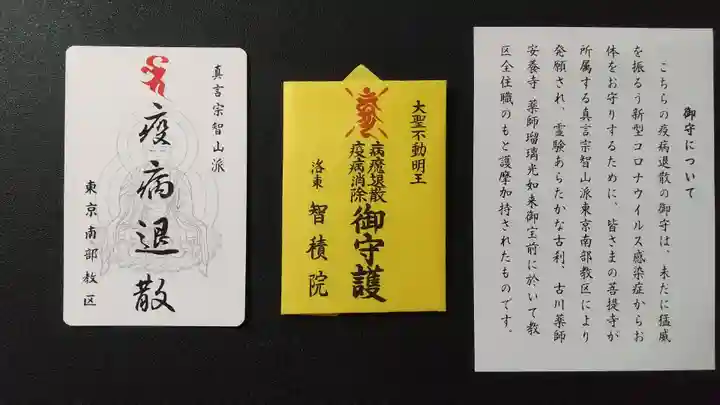 真言宗智山派
疫病退散
東京南部教区
大聖不動明王
病魔退散
疫病消除
御守護
洛東 智積院
御守について
こちらの疫病退散の御守は、未だに猛威
を振るう新型コロナウイルス感染症からお
体をお守りするために、皆さまの菩提寺が
所属する真言宗智山派東京南部教区により
発願され、霊験あらたかな古刹、古川薬師
安養寺 薬師瑠璃光如来御宝前に於いて教
区全住職のもと護摩加持されたものです。